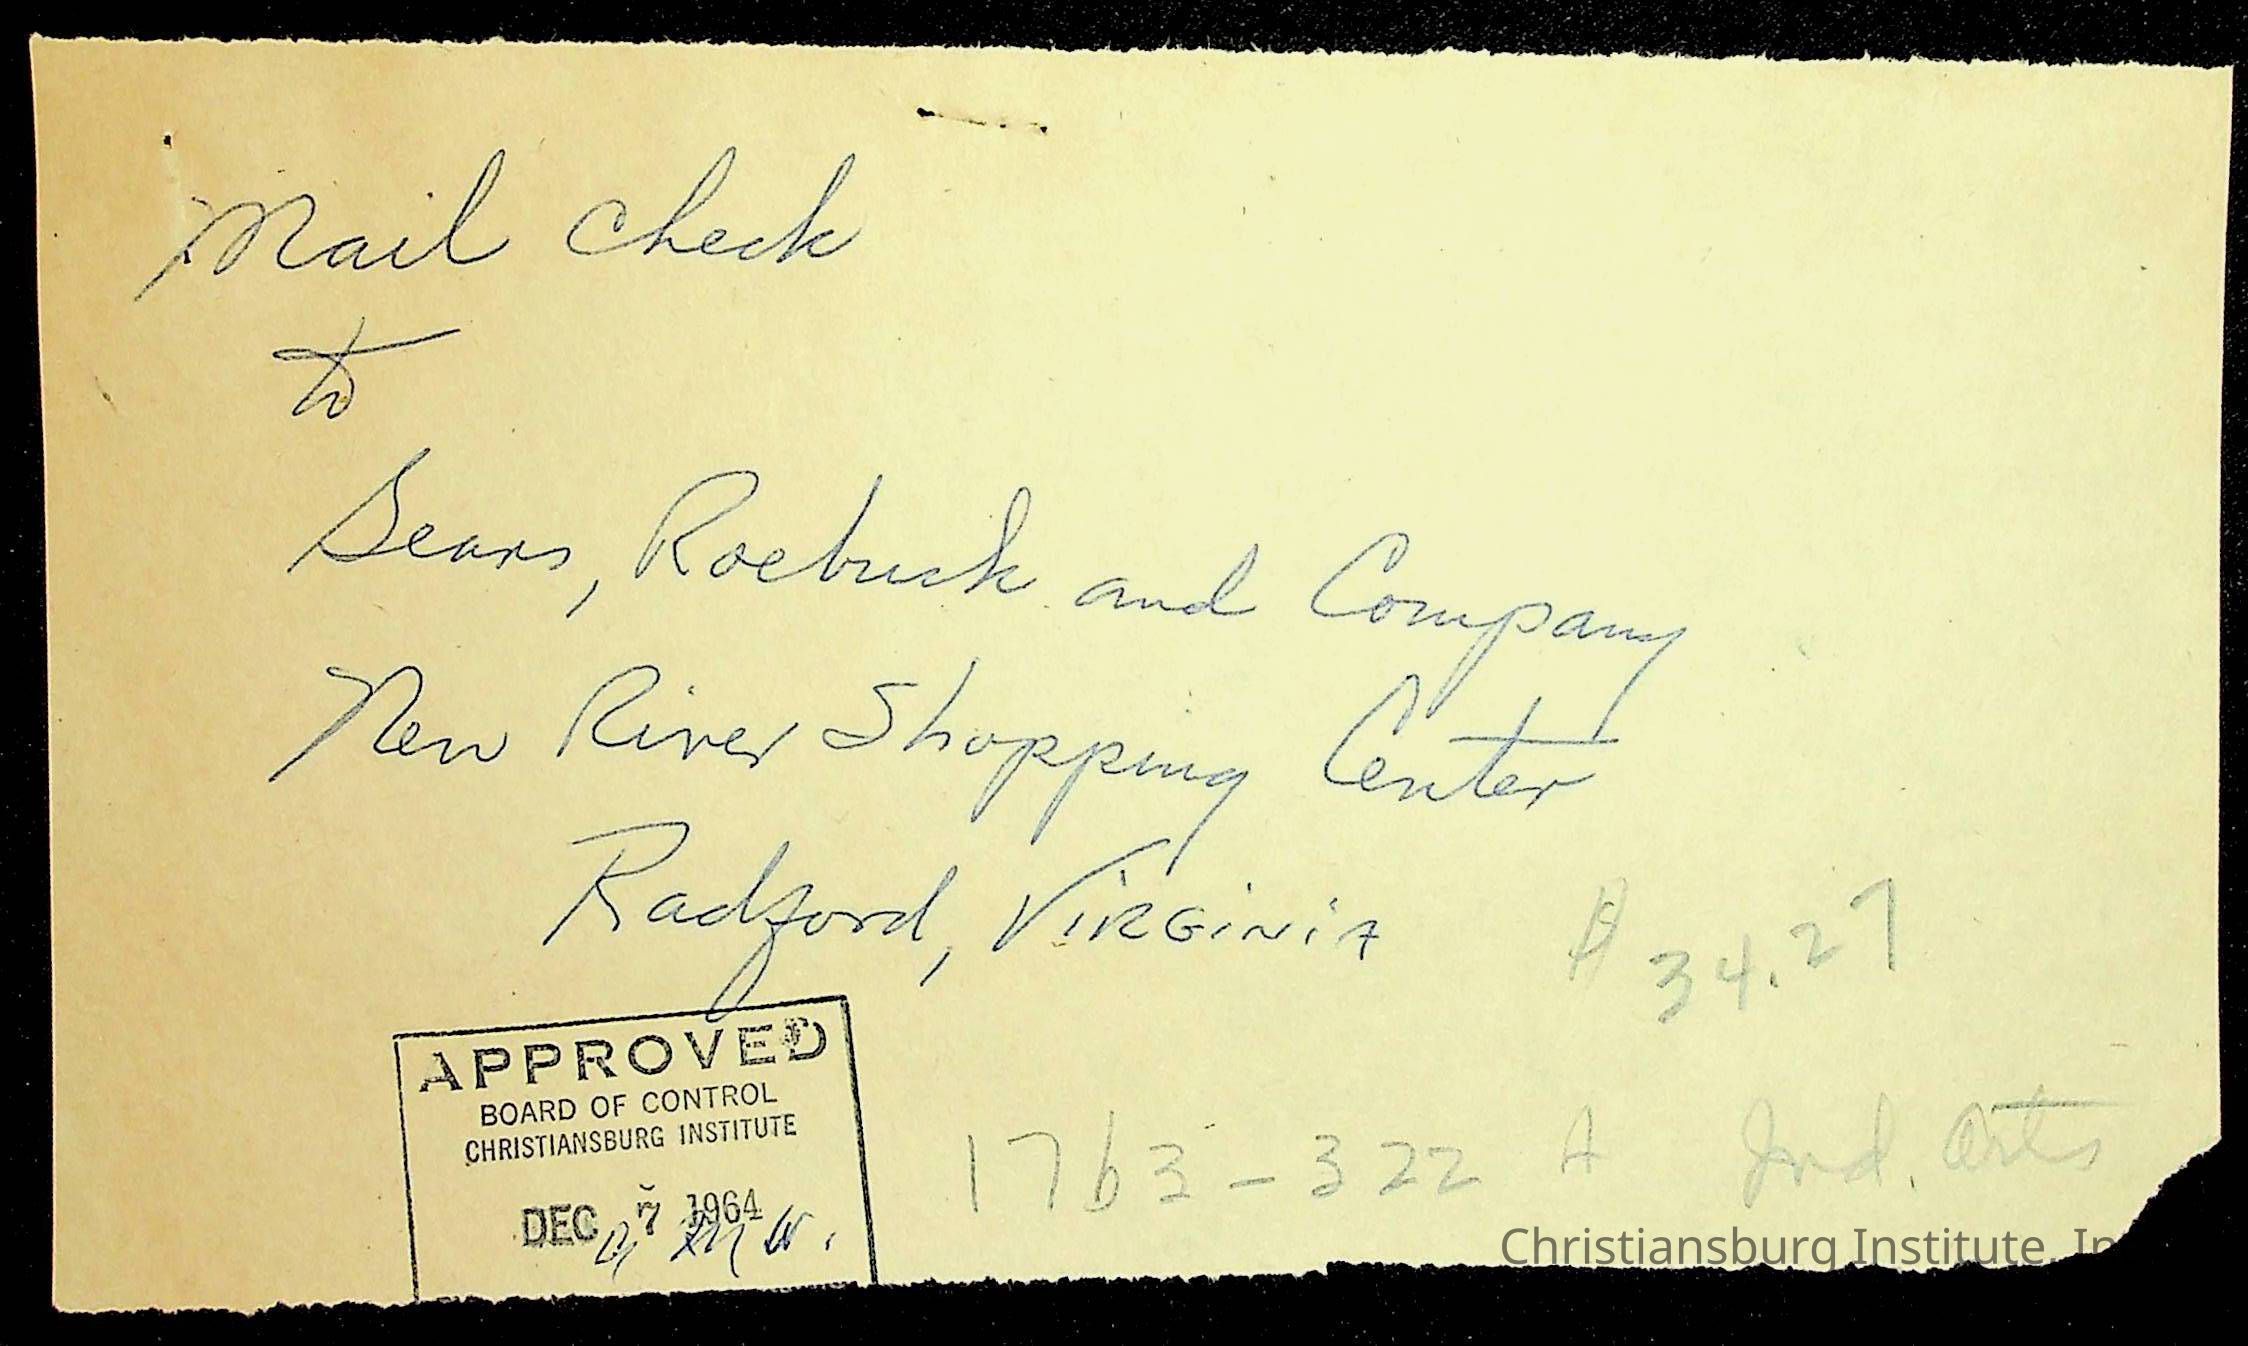 Mail check
to
Sears, Roebuck and Company
New River Shopping Center
Radford, VIRGINIA
$34.27
APPROVED
BOARD OF CONTROL
CHRISTIANSBURG INSTITUTE
DEC 7 1964
1763-322 A Ind. Arts
Christiansburg Institute, In